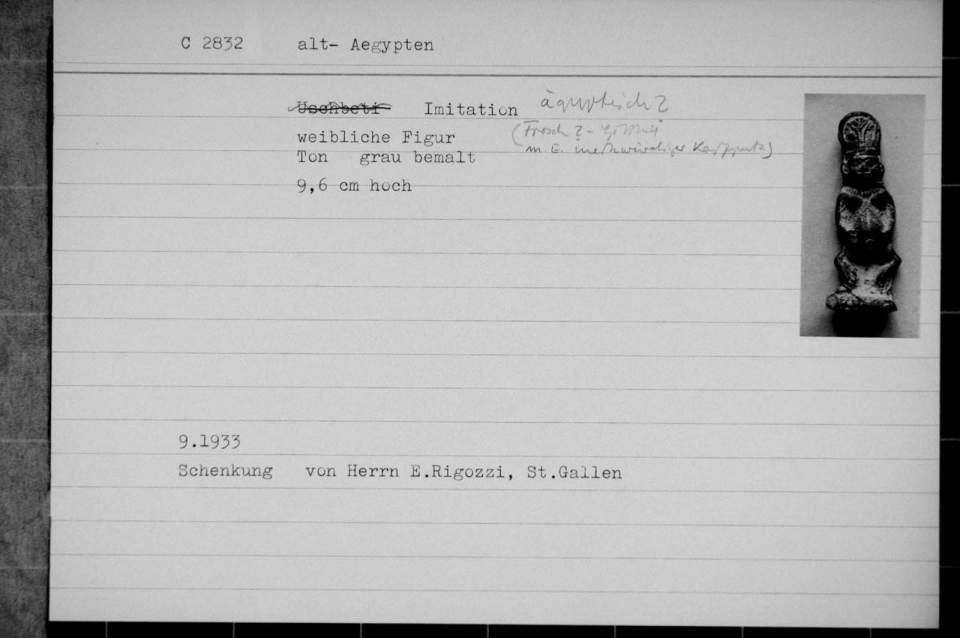 C 2832 alt- Aegypten
Uschbeti Imitation ägyptisch?
(Frosch? - Göttin
weibliche Figur
m. E.
Ton grau bemalt
9,6 cm hoch
9.1933
Schenkung von Herrn E.Rigozzi, St.Gallen